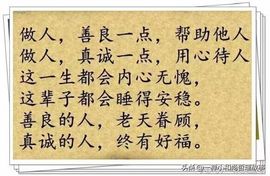 做人，善良一点，帮助他人
做人，真诚一点，用心待人
这一生都会内心无愧，
这辈子都会睡得安稳。
善良的人，老天眷顾，
真诚的人，终有好福。